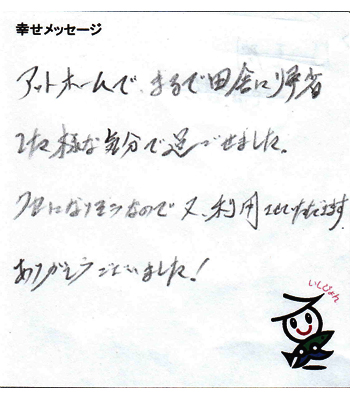 幸せメッセージ
アットホームで、まるで田舎に帰省
した様な気分で過ごせました。
クセになりそうなので又、利用させていただきます
ありがとうございました!
いしぴょん